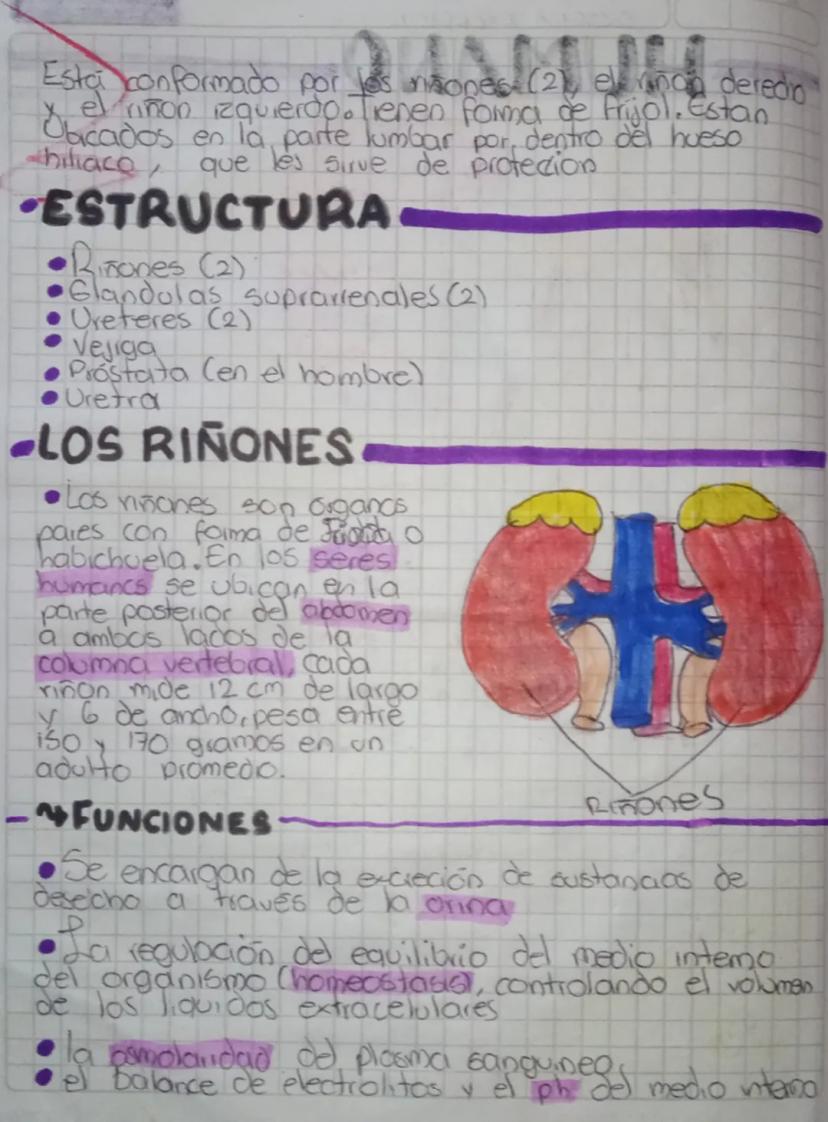 Está conformado por los riñones (2), el riñon derecho
y el riñon izquierdo. Tienen forma de frijol. Estan
Obicados en la parte lumbar por dentro del hueso
hiliaco, que les sirve de protecion
•ESTRUCTURA
•Riñones (2)
•Glandulas suprarrenales (2)
•Ureteres (2)
•Vejiga
•Próstata (en el hombre)
•Uretra
•LOS RIÑONES
•Los riñones son organos
pares con forma de o
habichuela. En los seres
humanos se ubican en la
parte posterior del abdomen
a ambos lados de la
columna vertebral, cada
riñon mide 12 cm de largo
y 6 de ancho, pesa entre
150 y 170 gramos en un
adulto promedio.
Riñones
FUNCIONES
•Se encargan de la excreción de sustancias de
desecho a través de la orina
•La regulación del equilibrio del medio interno
del organismo (homeostasis), controlando el volumen
de los liquidos extracelulares
•la osmolaridad del plasma sanguineo,
•el balance de electrolitos y el ph del medio interno